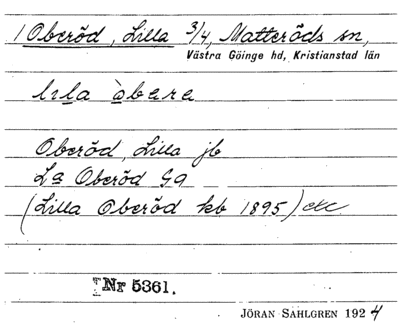 1 Oberöd, Lilla 3/4, Matteröds sn,
Västra Göinge hd, Kristianstad län
lila òbere
Oberöd, Lilla jb
La Oberöd GA
(Lilla Oberöd kb 1895) etc
Nr 5361.
JÖRAN SAHLGREN 1924